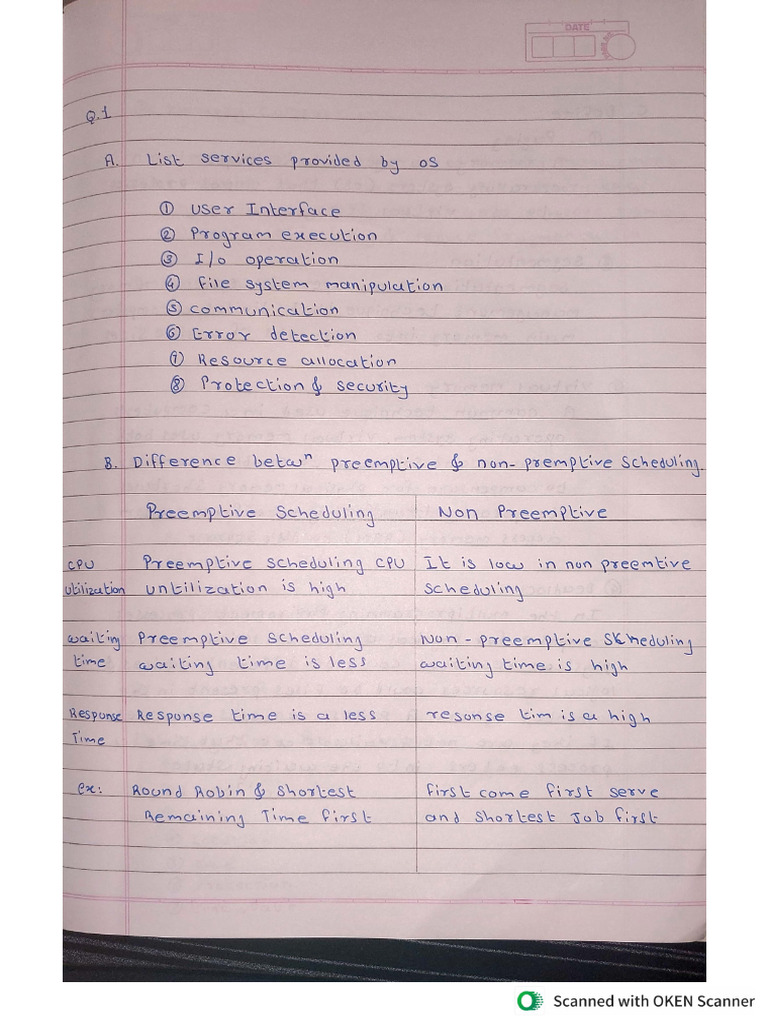 DATE
Q.1
A. List services provided by OS
① User Interface
② Program execution
③ I/o operation
④ File system manipulation
⑤ communication
⑥ Error detection
⑦ Resource allocation
⑧ Protection & security
B. Difference betwⁿ preemptive & non-premptive Scheduling.
Preemptive Scheduling Non Preemptive
CPU Preemptive scheduling CPU It is low in non preemtive
utilization untilization is high scheduling
waiting Preemptive Scheduling Non-preemptive Skheduling
time waiting time is less waiting time is high
Response Response time is a less resonse tim is a high
Time
ex: Round Robin & Shortest First come first serve
Remaining Time First and Shortest Job first
Scanned with OKEN Scanner